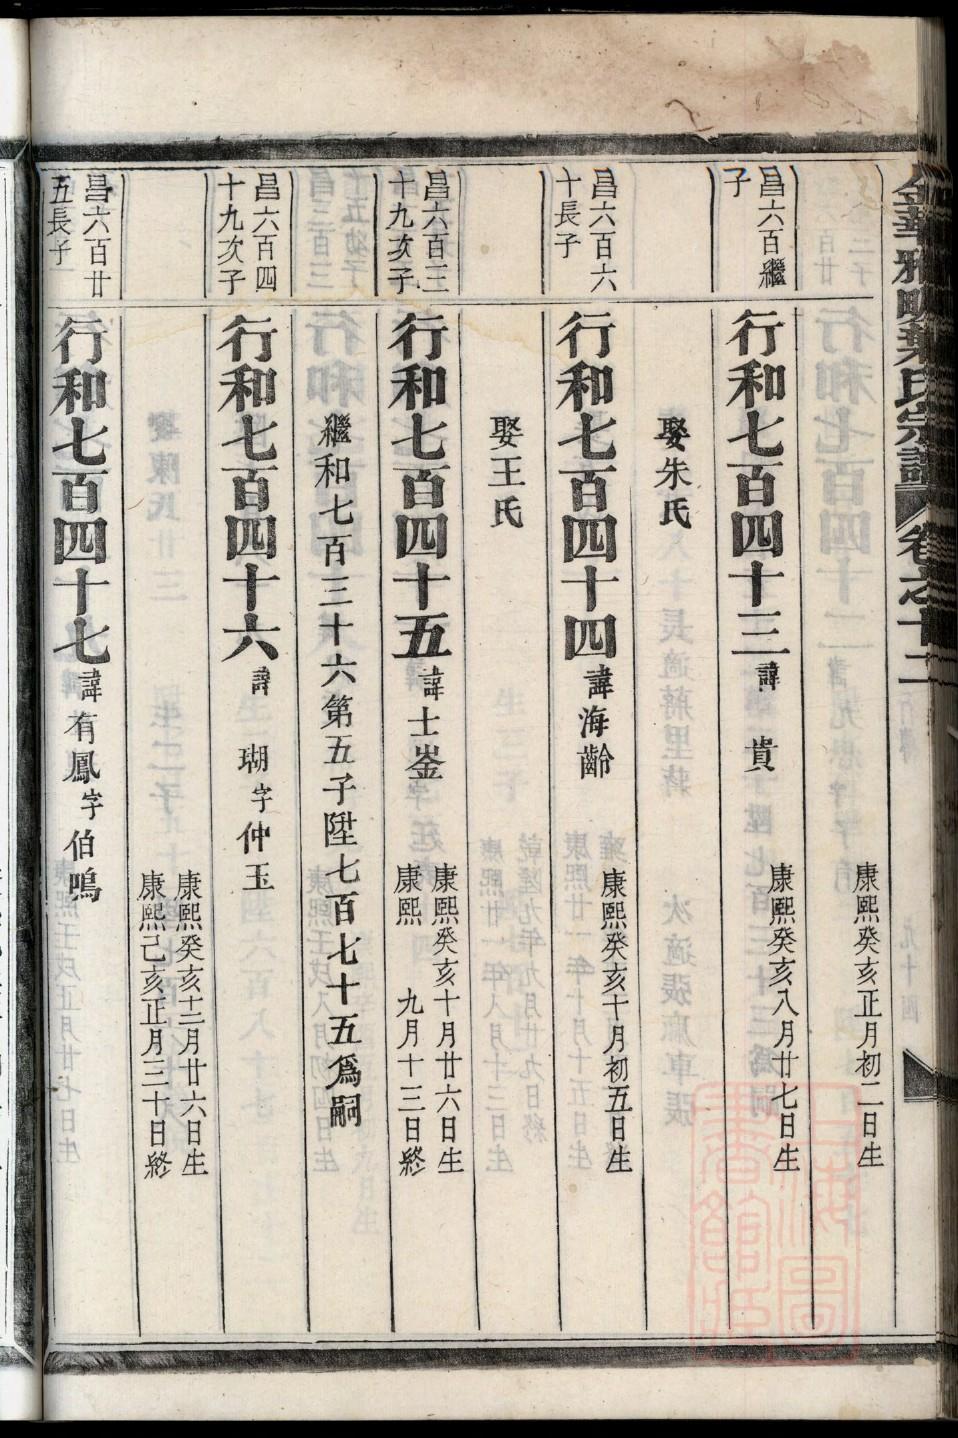 金華雅畈葉氏宗譜 卷之十二
康熙癸亥正月初二日生
昌六百繼子
行和七百四十三 諱 貴 康熙癸亥八月廿七日生
娶朱氏
昌六百六十長子
行和七百四十四 諱海齡 康熙癸亥十月初五日生
娶王氏
昌六百三十九次子
行和七百四十五 諱士崟 康熙癸亥十月廿六日生
康熙 九月十三日終
繼和七百三十六第五子陞七百七十五爲嗣
昌六百四十九次子
行和七百四十六 諱 瑚字仲玉
康熙癸亥十二月廿六日生
康熙己亥正月三十日終
昌六百廿五長子
行和七百四十七 諱有鳳字伯鳴